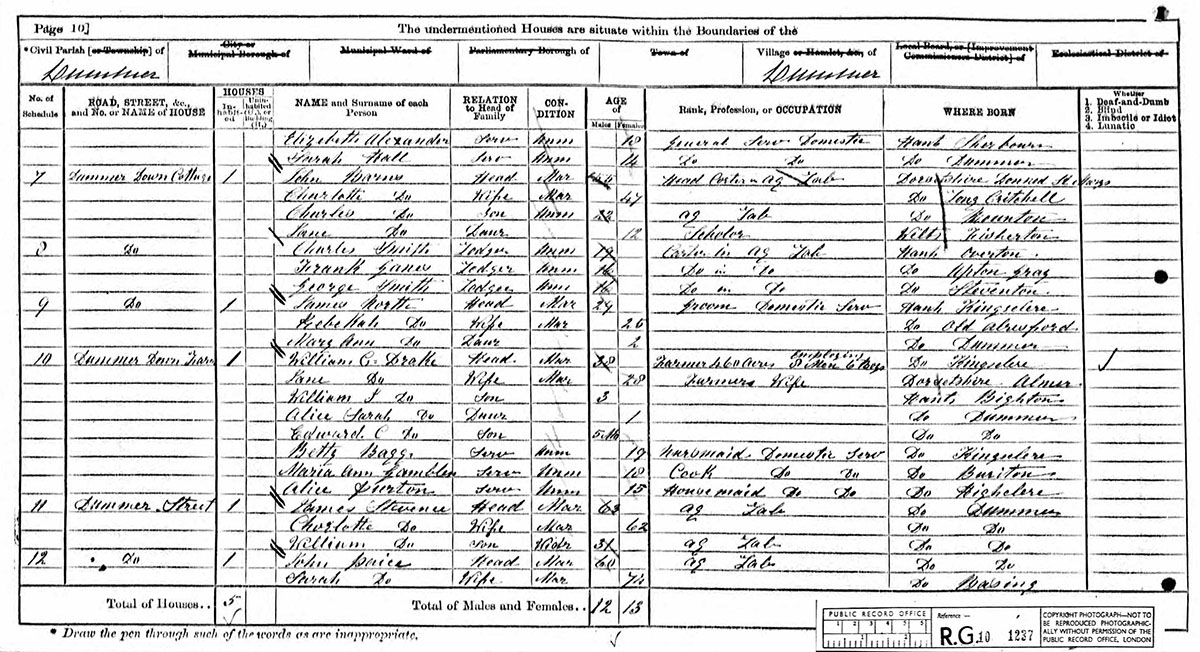 Page 10] The undermentioned Houses are situate within the Boundaries of the
*Civil Parish [or Township] of City or Municipal Borough of Municipal Ward of Parliamentary Borough of Town of Village or Hamlet, &c., of Local Board, or [Improvement Commissioners District] of Ecclesiastical District of
Dummer Dummer
No. of Schedule ROAD, STREET, &c., and No. or NAME of HOUSE HOUSES Inhabited Uninhabited (U.), or Building (B.) NAME and Surname of each Person RELATION to Head of Family CONDITION AGE of Males Females Rank, Profession, or OCCUPATION WHERE BORN Whether 1. Deaf-and-Dumb 2. Blind 3. Imbecile or Idiot 4. Lunatic
Elizabeth Alexander Serv Unm 18 General Serv Domestic Hants Sherborn
Sarah Hall Serv Unm 14 Do Do Do Dummer
7 Dummer Down Cottage 1 John Barnes Head Mar Head Carter Ag Lab Dorsetshire
Charlotte Do Wife Mar 47 Do Long Critchell
Charles Do Son Unm 22 Ag Lab Do
Jane Do Daur 12 Scholar Wilts Fisherton
8 Do Charles Smith Lodger Unm 19 Carter Ag Lab Hants Overton
Frank Lodger Unm 16 Do in Do Do Upton Gray
George Smith Lodger Unm 16 Do in Do Do Steventon
9 Do 1 James North Head Mar 29 Groom Domestic Serv Hants Kingsclere
Rebekah Do Wife Mar 26 Do Old Alresford
Mary Ann Do Daur 2 Do Dummer
10 Dummer Down Farm 1 William C. Drake Head Mar 38 Farmer 460 Acres employing Men 6 Boys Do Kingsclere
Jane Do Wife Mar 28 Farmers Wife Dorsetshire Almer
William J Do Son 3 Hants Bighton
Alice Sarah Do Daur 1 Do Dummer
Edward C Do Son 5 Mo Do Do
Betty Bagg Serv Unm 19 Nursmaid Domestic Serv Do Kingsclere
Maria Ann Gamblen Serv Unm 18 Cook Do Do Do Buriton
Alice Purton Serv Unm 15 Housemaid Do Do Do Highclere
11 Dummer Street 1 James Stevence Head Mar 63 Ag Lab Do Dummer
Charlotte Do Wife Mar 62 Do Do
William Do Son Widr 31 Ag Lab Do Do
12 Do 1 John Paice Head Mar 60 Ag Lab Do Do
Sarah Do Wife Mar 74 Do Basing
Total of Houses.. 5 Total of Males and Females.. 12 13
* Draw the pen through such of the words as are inappropriate.
PUBLIC RECORD OFFICE
1 2 3 4 5 6
Reference:-
R.G. 10 1237
COPYRIGHT PHOTOGRAPH—NOT TO BE REPRODUCED PHOTOGRAPHICALLY WITHOUT PERMISSION OF THE PUBLIC RECORD OFFICE, LONDON